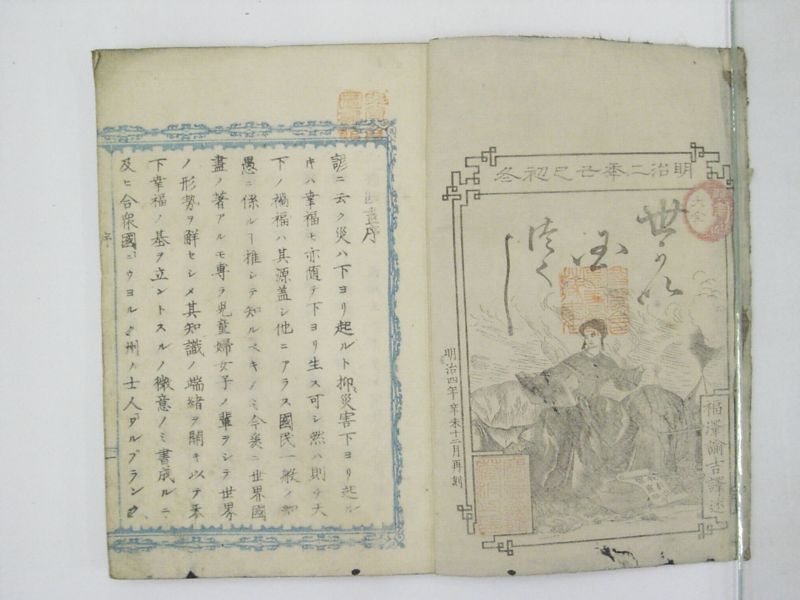 明治二年己巳初冬
世界
国
尽
福澤諭吉譯述
明治四年辛未十二月再刻
序
諺ニ云ク災ハ下ヨリ起ルト抑災害下ヨリ起ル
キハ幸福モ亦随テ下ヨリ生ス可シ然ハ則チ天
下ノ禍福ハ其源蓋シ他ニアラス國民一般ノ知
愚ニ係ルヿ推シテ知ルベキノミ今爰ニ世界國
盡ノ著アルモ専ラ児童婦女子ノ輩ヲシテ世界
ノ形勢ヲ解セシメ其知識ノ端緒ヲ開キ以テ天
下幸福ノ基ヲ立ントスルノ微意ノミ書成ルニ
及ヒ合衆國ニウヨルク州ノ士人アルブランク
序